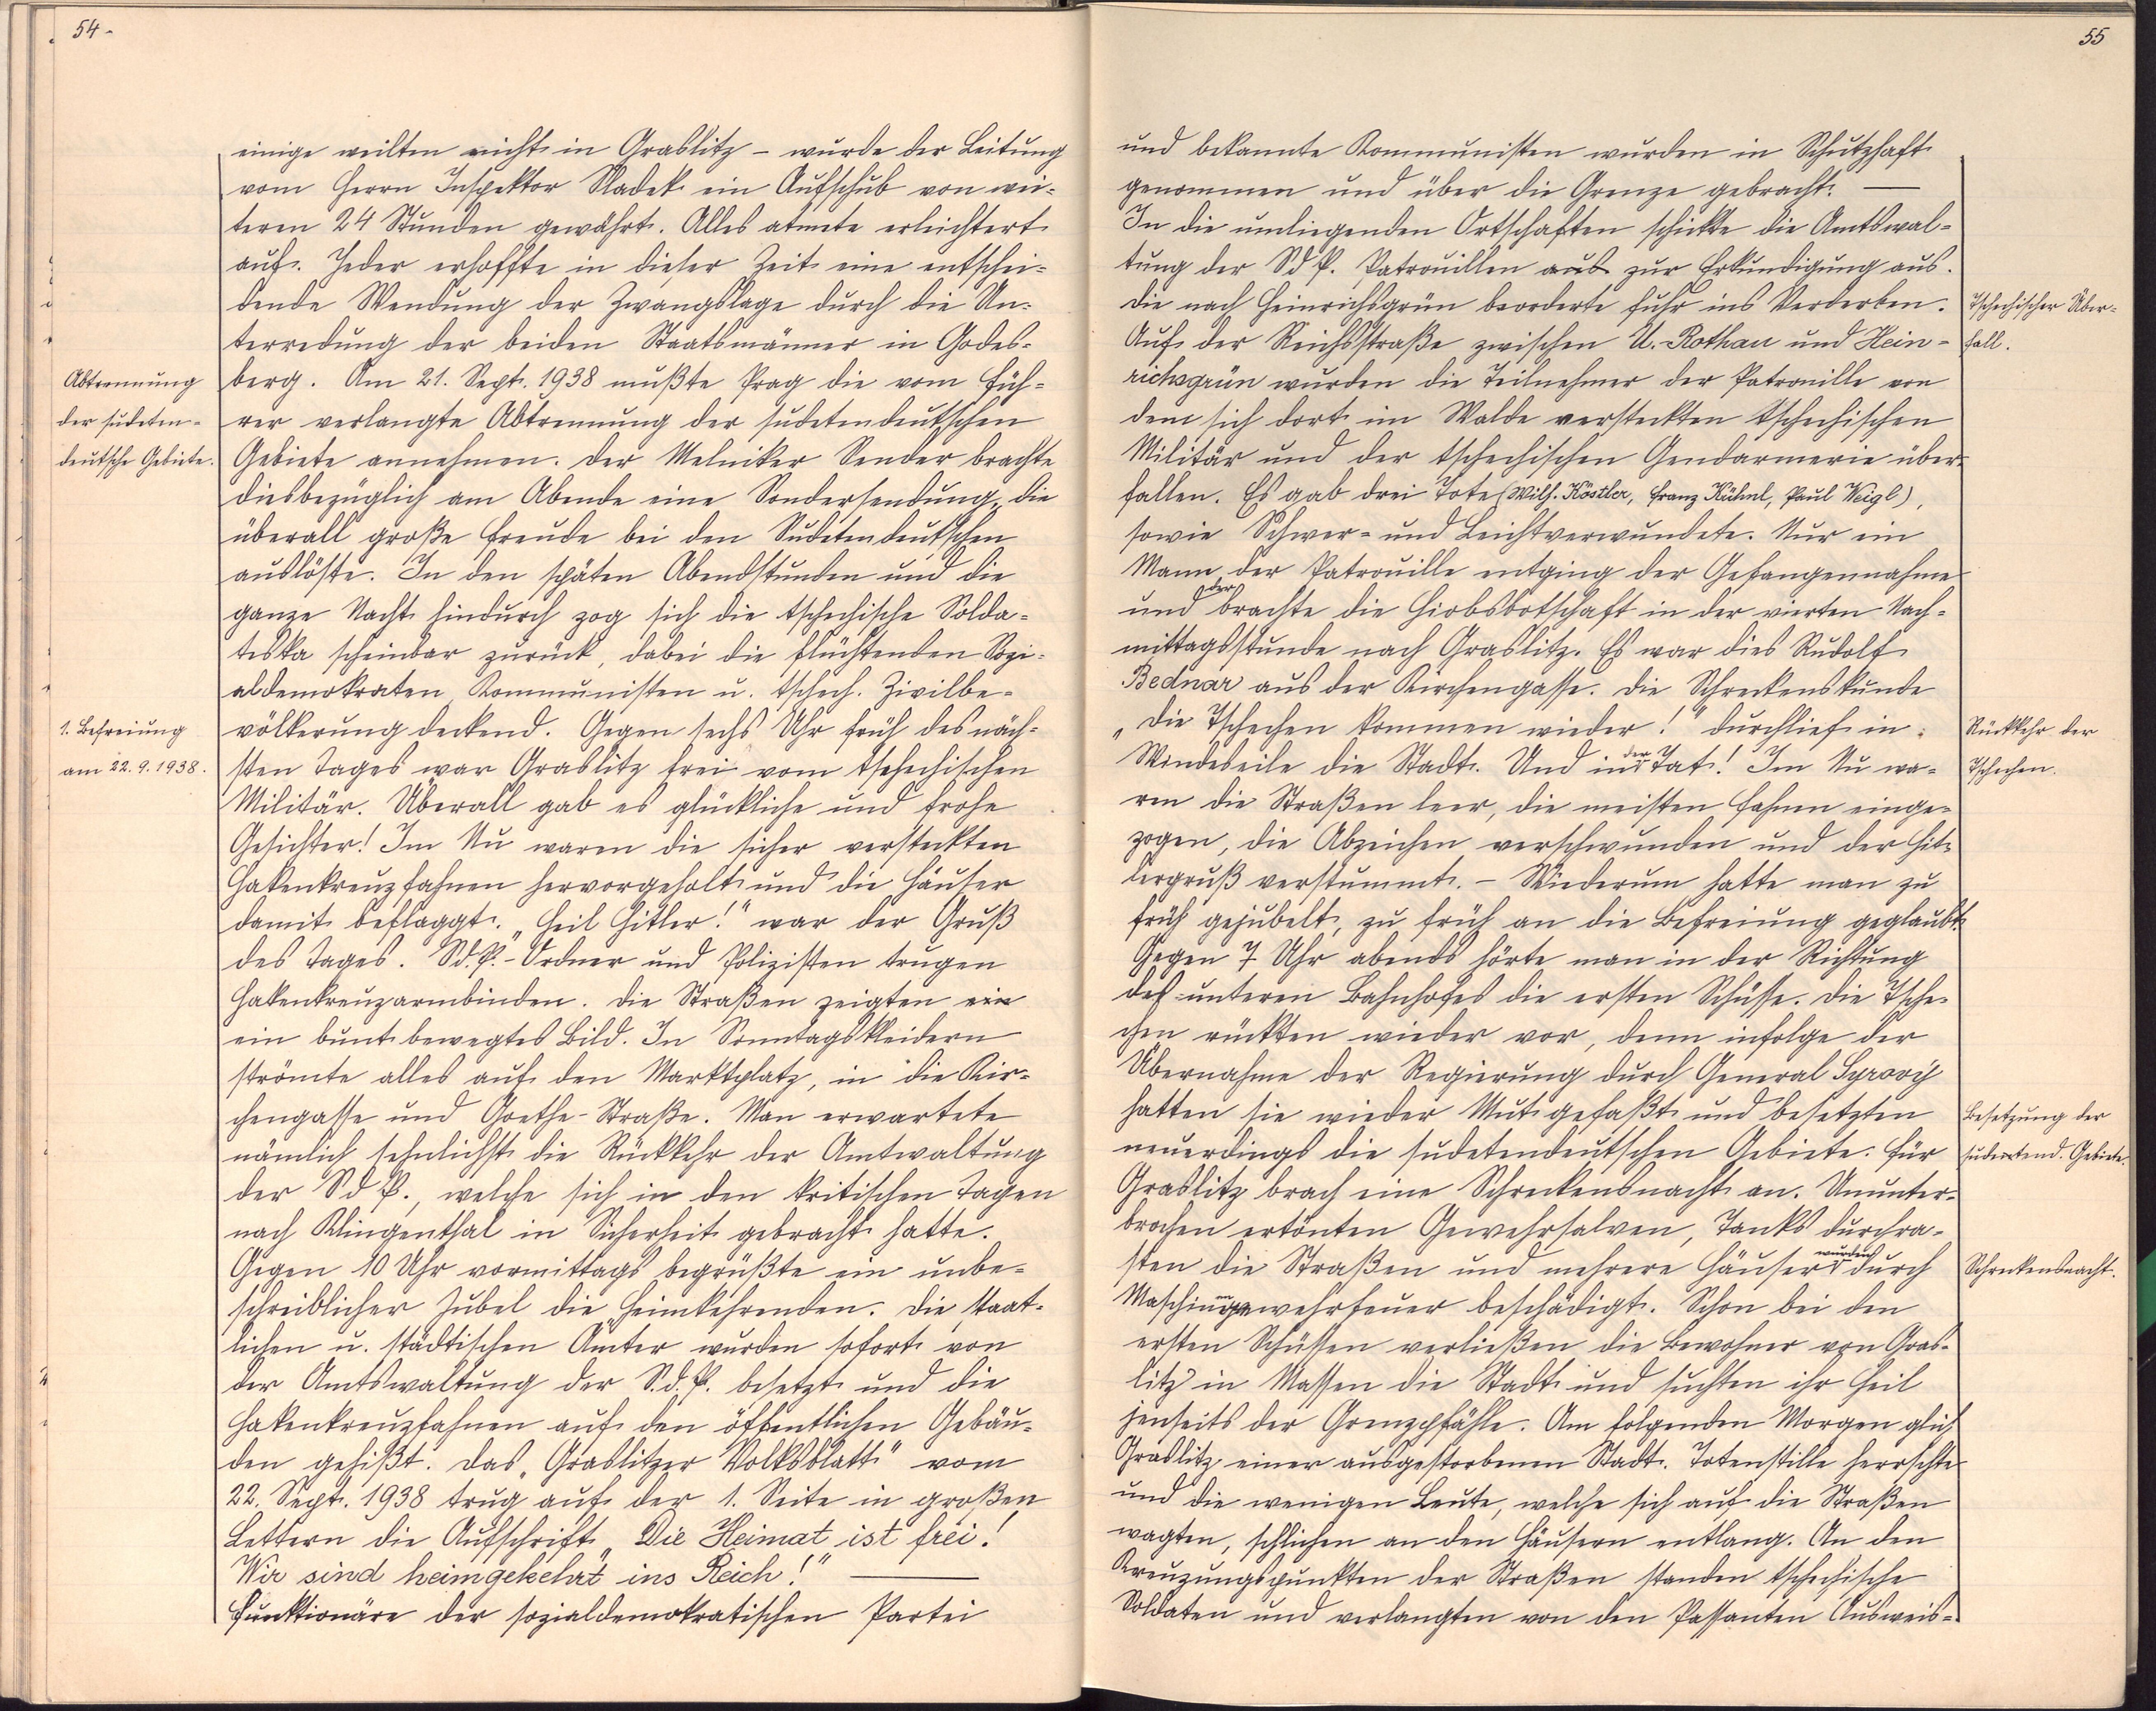 54.
einige weilten nicht in Graslitz – wurde der Leitung
vom Herrn Inspektor Sladek ein Aufschub von wei-
teren 24 Stunden gewährt. Alles atmete erleichtert
auf. Jeder erhoffte in dieser Zeit eine entschei-
dende Wendung der Zwangslage durch die Un-
terredung der beiden Staatsmänner in Godes-
Abtrennung
der sudeten-
deutsche Gebiete.
berg. Am 21. Sept. 1938 mußte Prag die vom Füh-
rer verlangte Abtrennung der sudetendeutschen
Gebiete annehmen. Der Melniker Sender brachte
diesbezüglich am Abende eine Sondersendung, die
überall große Freude bei den Sudetendeutschen
auslöste. In den späten Abendstunden und die
ganze Nacht hindurch zog sich die tschechische Solda-
teska scheinbar zurück, dabei die flüchtenden Sozi-
aldemokraten, Kommunisten u. tschech. Zivilbe-
1. Befreiung
am 22.9.1938.
völkerung deckend. Gegen sechs Uhr früh des näch-
sten Tages war Graslitz frei vom tschechischen
Militär. Überall gab es glückliche und frohe
Gesichter! Im Nu waren die sicher versteckten
Hakenkreuzfahnen hervorgeholt und die Häuser
damit beflaggt. „Heil Hitler!" war der Gruß
des Tages. Sd.P.-Ordner und Polizisten trugen
Hakenkreuzarmbinden. Die Straßen zeigten ein
ein bunt bewegtes Bild. In Sonntagskleidern
strömte alles auf den Marktplatz, in die Kir-
chengasse und Goethe-Straße. Man erwartete
nämlich sehnlichst die Rückkehr der Amtwaltung
der SdP., welche sich in den kritischen Tagen
nach Klingenthal in Sicherheit gebracht hatte.
Gegen 10 Uhr vormittags begrüßte ein unbe-
schreiblicher Jubel die Heimkehrenden. Die staat-
lichen u. städtischen Ämter wurden sofort von
der Amtswaltung der S.d.P. besetzt und die
Hakenkreuzfahnen auf den öffentlichen Gebäu-
den gehißt. Das „Graslitzer Volksblatt" vom
22. Sept. 1938 trug auf der 1. Seite in großen
Lettern die Aufschrift „Die Heimat ist frei!
Wir sind heimgekehrt ins Reich!" —
Funktionäre der sozialdemokratischen Partei
55
und bekannte Kommunisten wurden in Schutzhaft
genommen und über die Grenze gebracht. —
In die umliegenden Ortschaften schickte die Amtswal-
tung der SdP. Patrouillen aus zur Erkundigung aus.
Die nach Heinrichsgrün beorderte fuhr ins Verderben.
Tschechischer Über-
fall.
Auf der Reichsstraße zwischen U.-Rothau und Hein-
richsgrün wurden die Teilnehmer der Patrouille von
dem sich dort im Walde versteckten tschechischen
Militär und der tschechischen Gendarmerie über-
fallen. Es gab drei Tote (Wilh. Köstler, Franz Kühnl, Paul Weigl),
sowie Schwer- und Leichtverwundete. Nur ein
Mann der Patrouille entging der Gefangennahme
und der brachte die Hiobsbotschaft in der vierten Nach-
mittagsstunde nach Graslitz. Es war dies Rudolf
Bednar aus der Kirchengasse. Die Schreckenskunde
„Die Tschechen kommen wieder!" durchlief in
Rückkehr der
Tschechen.
Windeseile die Stadt. Und in der Tat! Im Nu wa-
ren die Straßen leer, die meisten Fahnen einge-
zogen, die Abzeichen verschwunden und der Hit-
lergruß verstummt. – Wiederum hatte man zu
früh gejubelt, zu früh an die Befreiung geglaubt.
Gegen 7 Uhr abends hörte man in der Richtung
des unteren Bahnhofes die ersten Schüsse. Die Tsche-
chen rückten wieder vor, denn infolge der
Übernahme der Regierung durch General Syrový
hatten sie wieder Mut gefaßt und besetzten
Besetzung der
sudetend. Gebiete.
neuerdings die sudetendeutschen Gebiete. Für
Graslitz brach eine Schreckensnacht an. Ununter-
brochen ertönten Gewehrsalven, Tanks durchra-
sten die Straßen und mehrere Häuser wurden durch
Schreckensnacht.
Maschinengewehrfeuer beschädigt. Schon bei den
ersten Schüssen verließen die Bewohner von Gras-
litz in Massen die Stadt und suchten ihr Heil
jenseits der Grenzpfähle. Am folgenden Morgen glich
Graslitz einer ausgestorbenen Stadt. Totenstille herrschte
und die wenigen Leute, welche sich auf die Straßen
wagten, schlichen an den Häusern entlang. An den
Kreuzungspunkten der Straßen standen tschechische
Soldaten und verlangten von den Passanten Ausweis-